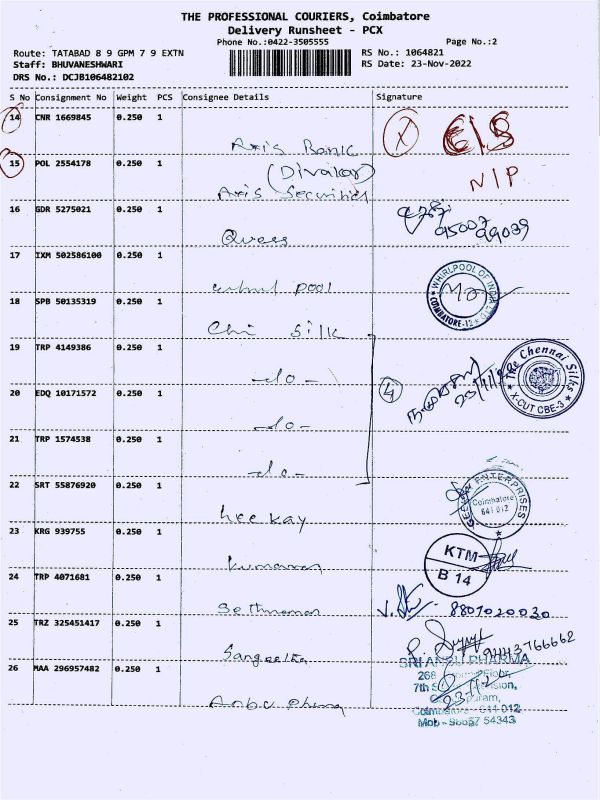 THE PROFESSIONAL COURIERS, Coimbatore
Delivery Runsheet - PCX
Phone No.:0422-3505555
Page No.:2
Route: TATABAD 8 9 GPM 7 9 EXTN
RS No.: 1064821
Staff: BHUVANESHWARI
RS Date: 23-Nov-2022
DRS No.: DCJB106482102
S No Consignment No Weight PCS Consignee Details Signature
14 CNR 1669845 0.250 1
Axis Bank
(Divakar)
15 POL 2554178 0.250 1
N/P
Axis Securities
16 GDR 5275021 0.250 1
Quess
17 IXM 502586100 0.250 1
whirl pool
WHIRLPOOL OF INDIA LTD
COIMBATORE-12
18 SPB 50135319 0.250 1
Chi silk
19 TRP 4149386 0.250 1
-do-
4
The Chennai Silks
X-CUT CBE-3
20 EDQ 10171572 0.250 1
-do-
21 TRP 1574538 0.250 1
-do-
22 SRT 55876920 0.250 1
hee kay
ENTERPRISES
Coimbatore
641 012
23 KRG 939755 0.250 1
Kumaran
KTM
B 14
24 TRP 4071681 0.250 1
8807020030
25 TRZ 325451417 0.250 1
Sangeetha
9443766662
26 MAA 296957482 0.250 1
Anbu Pharma
SRI ANBU PHARMA
268
7th
Coimbatore - 641 012
Mob - 98657 54343